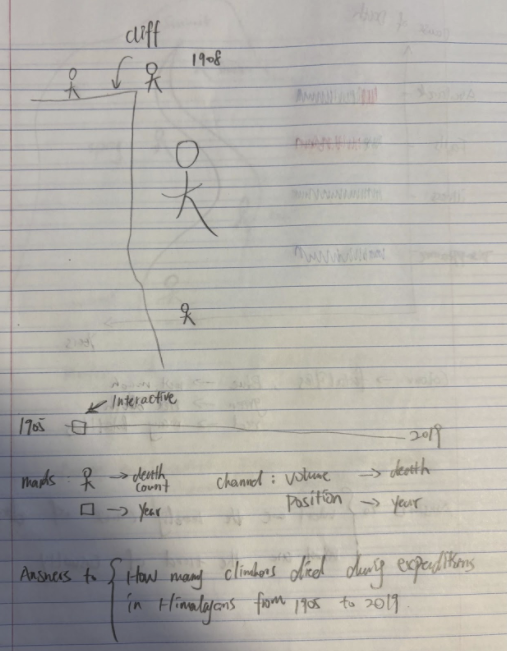 cliff
1908
Interactive
1905
2019
marks : → death count
→ year
channel : volume → death
position → year
Answers to { How many climbers died during expeditions
in Himalayans from 1905 to 2019